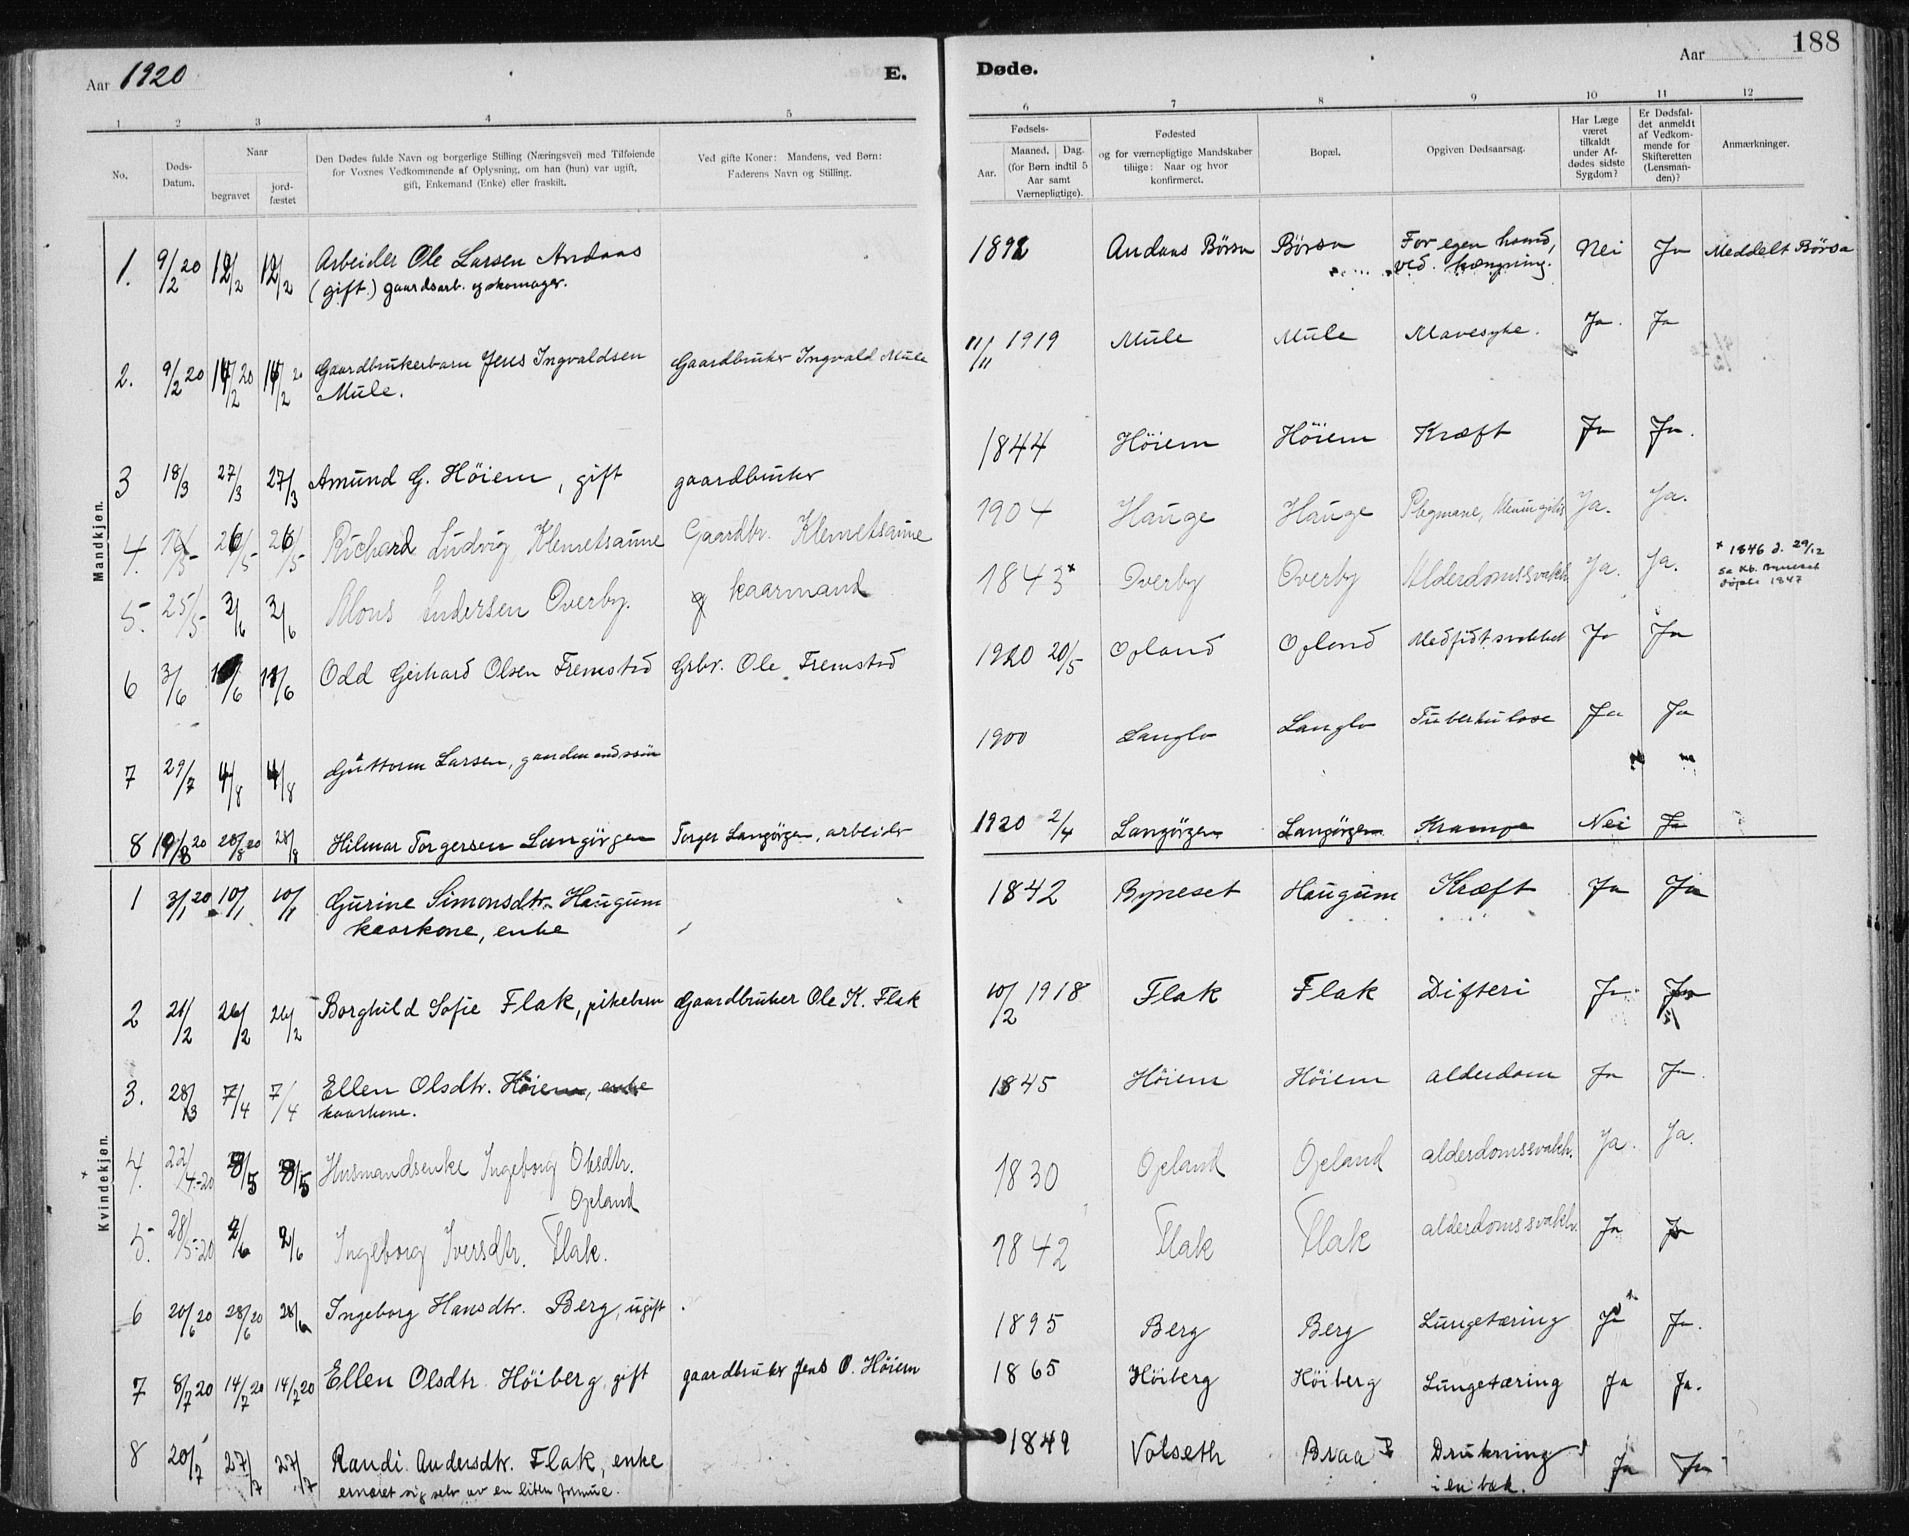 Aar 1920
E.
Døde.
Aar
188
1 2 3 4 5 6 7 8 9 10 11 12
No.
Døds-
Datum.
Naar
begravet
jord-
fæstet
Den Dødes fulde Navn og borgerlige Stilling (Næringsvei) med Tilføiende
for Voxnes Vedkommende af Oplysning, om han (hun) var ugift,
gift, Enkemand (Enke) eller fraskilt.
Ved gifte Koner: Mandens, ved Børn:
Faderens Navn og Stilling.
Fødsels-
Aar.
Maaned. Dag.
(for Børn indtil 5
Aar samt
Værnepligtige).
Fødested
og for værnepligtige Mandskaber
tillige: Naar og hvor
konfirmeret.
Bopæl.
Opgiven Dødsaarsag.
Har Læge
været
tilkaldt
under Af-
dødes sidste
Sygdom?
Er Dødsfal-
det anmeldt
af Vedkom-
mende for
Skifteretten
(Lensman-
den)?
Anmærkninger.
Mandkjøn.
1. 9/2 20 12/2 12/2 Arbeider Ole Larsen Andaas 1892 Andaas Börsa Börsa For egen haand, Nei Ja Meddelt Börsa
(gift.) gaardsarb. og skomager. ved hængning.
2. 9/2 20 14/2 20 14/2 20 Gaardbrukerbarn Jens Ingvaldsen Gaardbruker Ingvald Mule 11/11 1919 Mule Mule Mavesyke. Ja. Ja
Mule.
3 18/3 27/3 27/3 Amund G. Höiem, gift gaardbruker 1844 Höiem Höiem Kræft Ja Ja.
4. 26/5 26/5 Richard Ludvig Klemetsaune Gaardbr. Klemetsaune 1904 Hauge Hauge Ja. Ja.
5. 25/5 3/6 3/6 Andersen Overby. kaarmand 1843* Overby Overby Alderdomssvakh. Ja. Ja. * 1846 d. 29/12
se Kb. Byneset
døpte 1847
6 3/6 11/6 Odd Gerhard Olsen Fremstad Grbr. Ole Fremstad 1920 20/5 Opland Opland Medfödt svakhet Ja Ja
7 29/7 4/8 4/8 Guttorm Larsen, gaardmandssön 1900 Langlo Langlo Tuberkulose Ja Ja
8 19/8 20 28/8 20 28/8 Hilmar Torgersen Langörgen Torger Langörgen, arbeider 1920 2/4 Langörgen Langörgen Krampe Nei Ja
Kvindekjøn.
1 3/1 20 10/1 10/1 Gurine Simonsdtr. Haugum 1842 Byneset Haugum Kræft Ja Ja
kaarkone, enke
2 21/2 26/2 26/2 Borghild Sofie Flak, pikebarn Gaardbruker Ole K. Flak 10/2 1918 Flak Flak Difteri Ja. Ja
3. 28/3 7/4 7/4 Ellen Olsdtr. Höiem, enke 1845 Höiem Höiem alderdom Ja Ja.
kaarkone.
4. 22/4-20 8/5 8/5 Husmandsenke Ingeborg Olsdtr. 1830 Opland Opland alderdomssvakh. Ja. Ja.
Opland
5. 28/5-20 2/6 2/6 Ingeborg Iversdtr. Flak. 1842 Flak Flak alderdomssvakh. Ja Ja
6 20/6 20 28/6 20 28/6 Ingeborg Hansdtr. Berg, ugift 1895 Berg Berg Lungetæring Ja Ja.
7 8/7 20 14/7 20 14/7 20 Ellen Olsdtr. Höiberg, gift gaardbruker Jens O. Höiem 1865 Höiberg Höiberg Lungetæring Ja Ja.
8 20/7 27/7 27/7 Randi Andersdtr. Flak, enke 1849 Volseth Braa Drukning Ja Ja
ernæret sig selv av en liten formue. i en bæk.